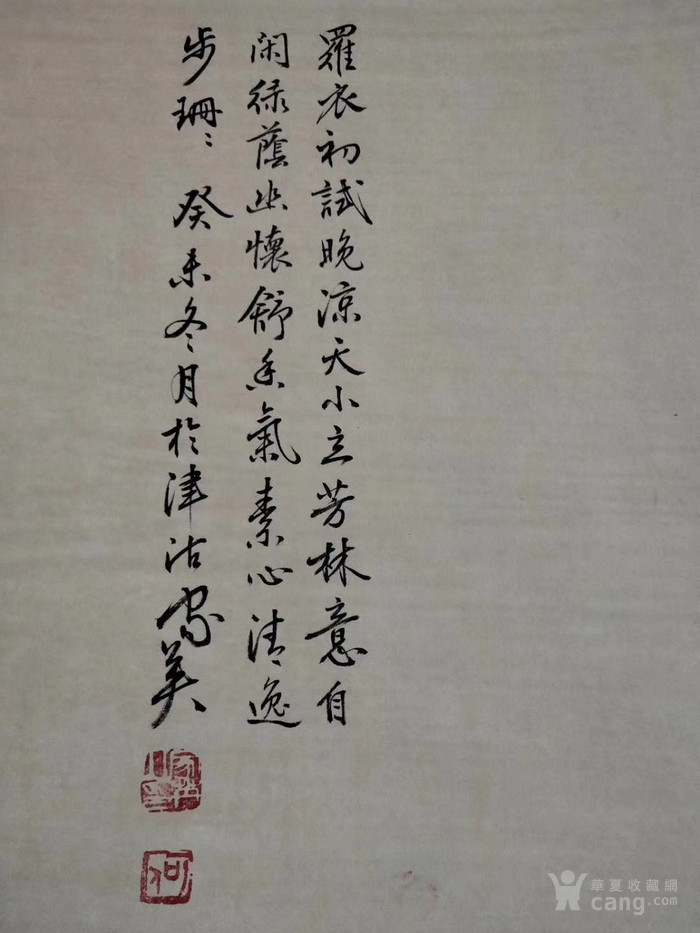 羅衣初試晚涼天小立芳林意自
闲绿蔭幽懷舒香氣素心清逸
步珊〻 癸未冬月於津沽家英
何
華夏收藏網
cang.com